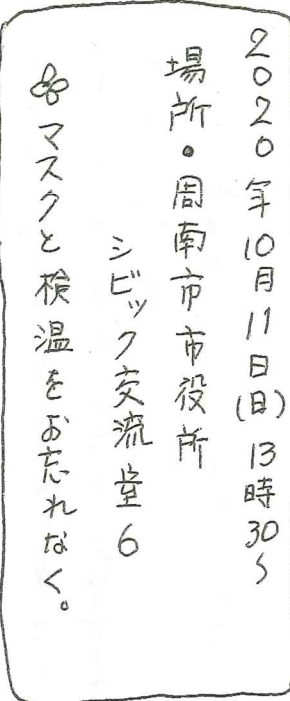 2020年10月11日(日)13時30〜
場所・周南市市役所
シビック交流室6
マスクと検温をお忘れなく。